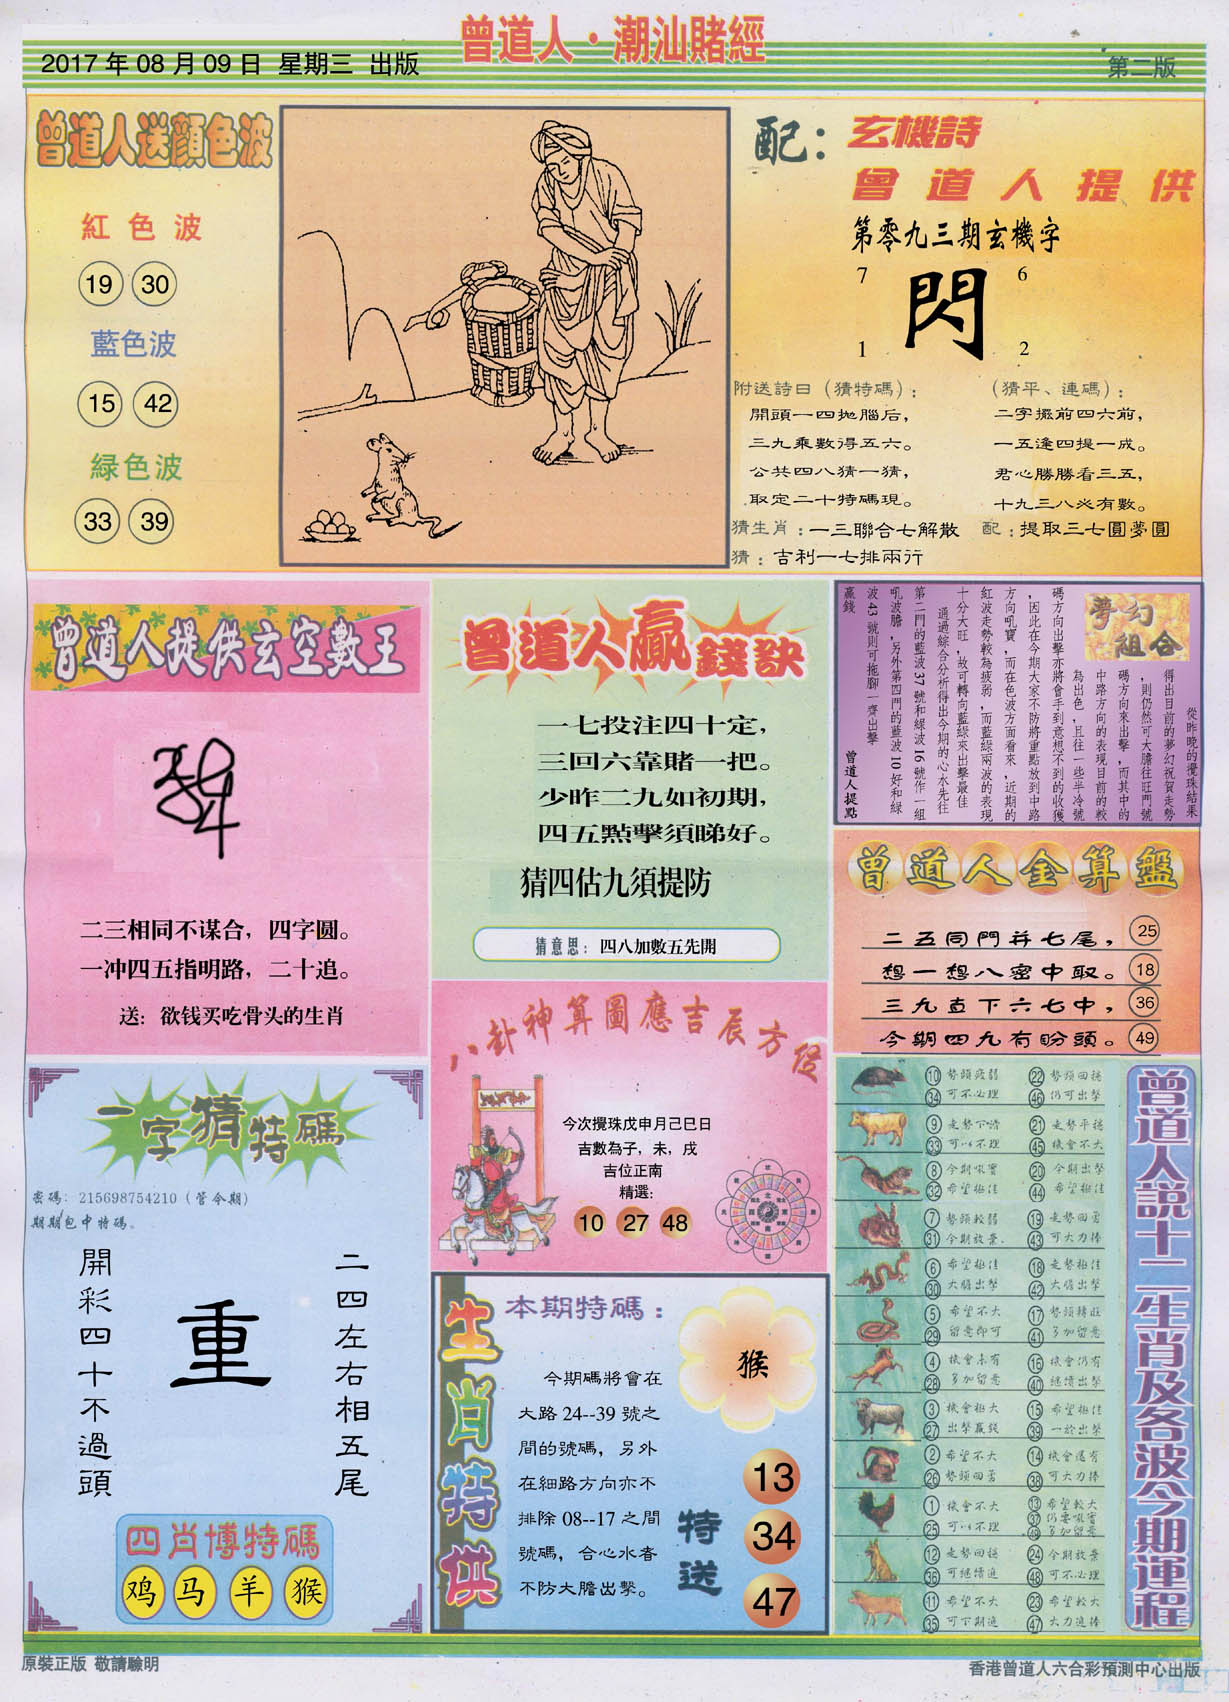 曾道人·潮汕賭經
2017年08月09日 星期三 出版
第二版
曾道人送顏色波
紅色波
19 30
藍色波
15 42
緑色波
33 39
配：玄機詩
曾道人提供
第零九三期玄機字
7 6
閃
1 2
附送詩曰（猜特碼）：
開頭一四拋腦后，
三九乘數得五六。
公共四八猜一猜，
取定二十特碼現。
（猜平、連碼）：
二字擺前四六前，
一五逢四提一成。
君心勝勝看三五，
十九三八必有數。
猜生肖：一三聯合七解散
配：提取三七圓夢圓
猜：吉利一七排兩行
曾道人提供玄空數王
二三相同不谋合，四字圆。
一冲四五指明路，二十追。
送：欲钱买吃骨头的生肖
曾道人贏錢訣
一七投注四十定，
三回六靠賭一把。
少昨二九如初期，
四五點擊須睇好。
猜四估九須提防
猜意思：四八加數五先開
夢幻組合
從昨晚的攪珠結果
得出目前的夢幻祝賀走勢
，則仍然可大膽往旺門號
碼方向來出擊，而其中的
中路方向的表現目前的較
為出色，且往一些半冷號
碼方向出擊亦將會手到意想不到的收獲
，因此在今期大家不防將重點放到中路
方向吼寶，而在色波方面看來，近期的
紅波走勢較為疲弱，而藍綠兩波的表現
十分大旺，故可轉向藍綠來出擊最佳
通過綜合分析得出今期的心水先往
第二門的藍波37號和綠波16號作一組
吼波膽，另外第四門的藍波10好和綠
波43號則可拖腳一齊出擊
贏錢
曾道人提點
曾道人金算盤
二五同門并七尾， 25
想一想八密中取。 18
三九直下六七中， 36
今期四九有盼頭。 49
八卦神算圖應吉辰方位
今次攪珠戊申月己巳日
吉數為子，未，戌
吉位正南
精選：
10 27 48
一字猜特碼
密碼：215698754210（管令期）
期期包中特碼。
開彩四十不過頭
重
二四左右相五尾
四肖博特碼
鸡 马 羊 猴
生肖特供
本期特碼：
猴
今期碼將會在
大路24--39號之
間的號碼，另外
在細路方向亦不
排除08--17之間
號碼，合心水者
不防大膽出擊。
特送
13
34
47
曾道人説十二生肖及各波今期運程
10 勢頭疲弱 22 勢頭回穩
34 可不必理 46 仍可出擊
9 走勢下滑 21 走勢平穩
33 可以不理 45 機會不大
8 今期吼寶 20 今期出擊
32 希望極佳 44 希望極佳
7 勢頭較弱 19 走勢回勇
31 今期放棄 43 可大力捧
6 希望極佳 18 走勢極佳
30 大膽出擊 42 大膽出擊
5 希望不大 17 勢頭轉旺
29 留意即可 41 多加留意
4 機會未有 16 機會仍有
28 多加留意 40 繼續出擊
3 機會極大 15 希望極佳
27 出擊贏錢 39 一於出擊
2 希望不大 14 機會還有
26 勢頭回勇 38 可大力捧
1 機會不大 13 希望較大
25 可以不理 37 仍要吼寶
49 多加留意
12 走勢回穩 24 今期放棄
36 可繼續追 48 可不必理
11 希望不大 23 希望較大
35 可下期追 47 大力追捧
原裝正版 敬請驗明
香港曾道人六合彩預測中心出版